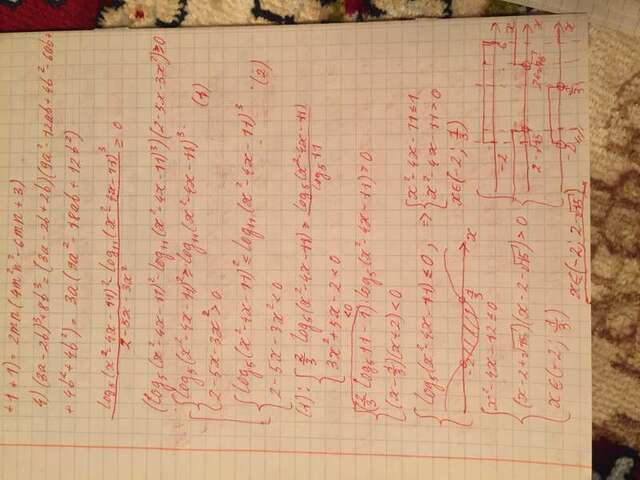 +1+1) = 2mn(4m²n²-6mn+3)
4) (3a-2b)³+8b³ = (3a-2b+2b)(9a²-12ab+4b²-6ab+
+4b²+4b²) = 3a(9a²-18ab+12b²)
(log₅(x²-4x-11)²-log₁₁(x²-4x-11)³)/(2-5x-3x²) ≥ 0
(log₅(x²-4x-11)²-log₁₁(x²-4x-11)³)(2-5x-3x²) ≥ 0
{ log₅(x²-4x-11)² ≥ log₁₁(x²-4x-11)³ (1)
2-5x-3x² > 0
{ log₅(x²-4x-11)² ≤ log₁₁(x²-4x-11)³ (2)
2-5x-3x² < 0
(1): { 2/3 log₅(x²-4x-11) ≥ log₅(x²-4x-11)/log₅11
3x²+5x-2 < 0
<0
{ (2/3 log₅11-1) log₅(x²-4x-11) ≥ 0
(x-1/3)(x+2) < 0
{ log₅(x²-4x-11) ≤ 0; => { x²-4x-11 ≤ 1
x²-4x-11 > 0
-2 1/3 x x∈(-2; 1/3)
{ x²-4x-12 ≤ 0 -2 6 x
(x-2+√15)(x-2-√15) > 0 2-√15 2+√15 x
x∈(-2; 1/3) -2 1/3 x
x∈(-2; 2-√15)